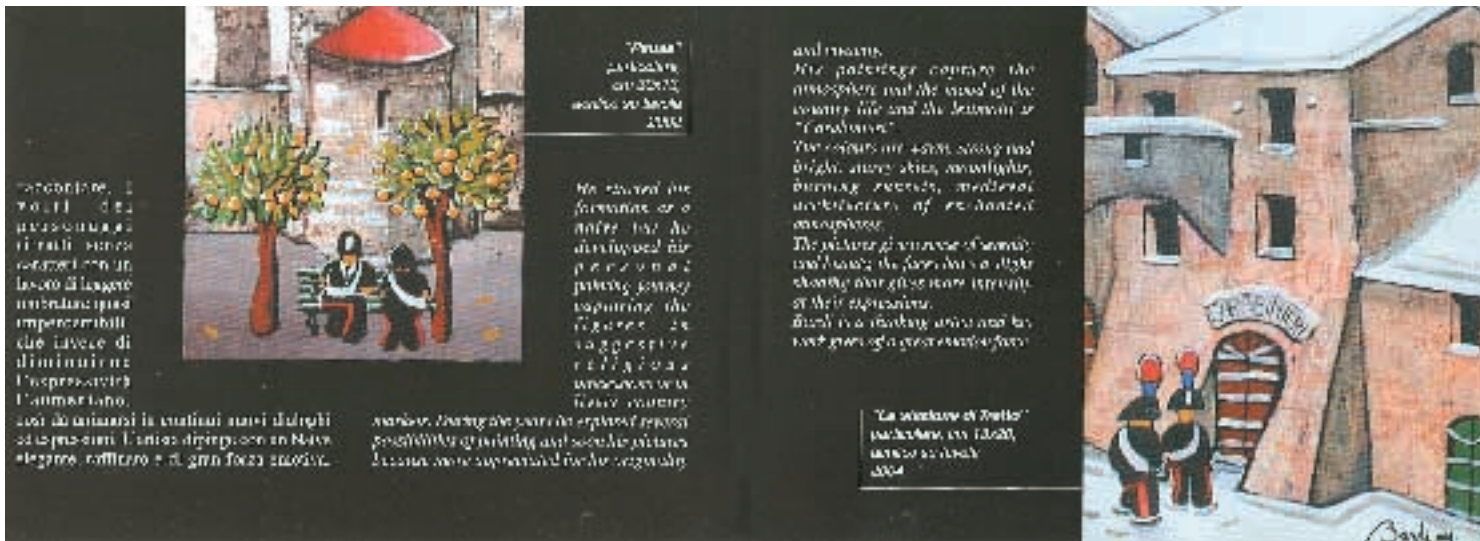 raccontare. I
volti dei
personaggi
ritratti senza
caratteri con un
lavoro di leggere
ombrature quasi
impercettibili
che invece di
diminuirne
l'espressività
l'aumentano,
così da animarsi in continui nuovi dialoghi
ed espressioni. L'artista dipinge con un Naive
elegante, raffinato e di gran forza emotiva.
particolare,
2002
He started his
formation as a
naive but he
developed his
personal
painting journey
capturing the
figures in
suggestive
religious
or in
country
manner. During the years he explored several
possibilities of painting and soon his pictures
became more appreciated for his originality
and
His paintings capture the
atmosphere and the mood of the
country life and the
"Carabinieri".
The colours are warm, strong and
bright, starry skies, moonlights,
burning sunsets, medieval
architecture of enchanted
atmospheres.
The pictures give a sense of serenity
and beauty, the faces have a slight
shading that gives more intensity
at their expressions.
is a thinking artist and his
work gives of a great emotive force.
"La stazione di
particolare, cm
su tavola
2004
CARABINIERI